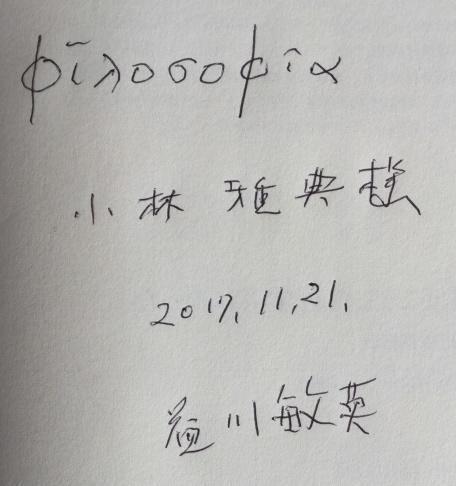 φῖλοσοφîα
小林 雅典様
2017, 11, 21,
川敏英